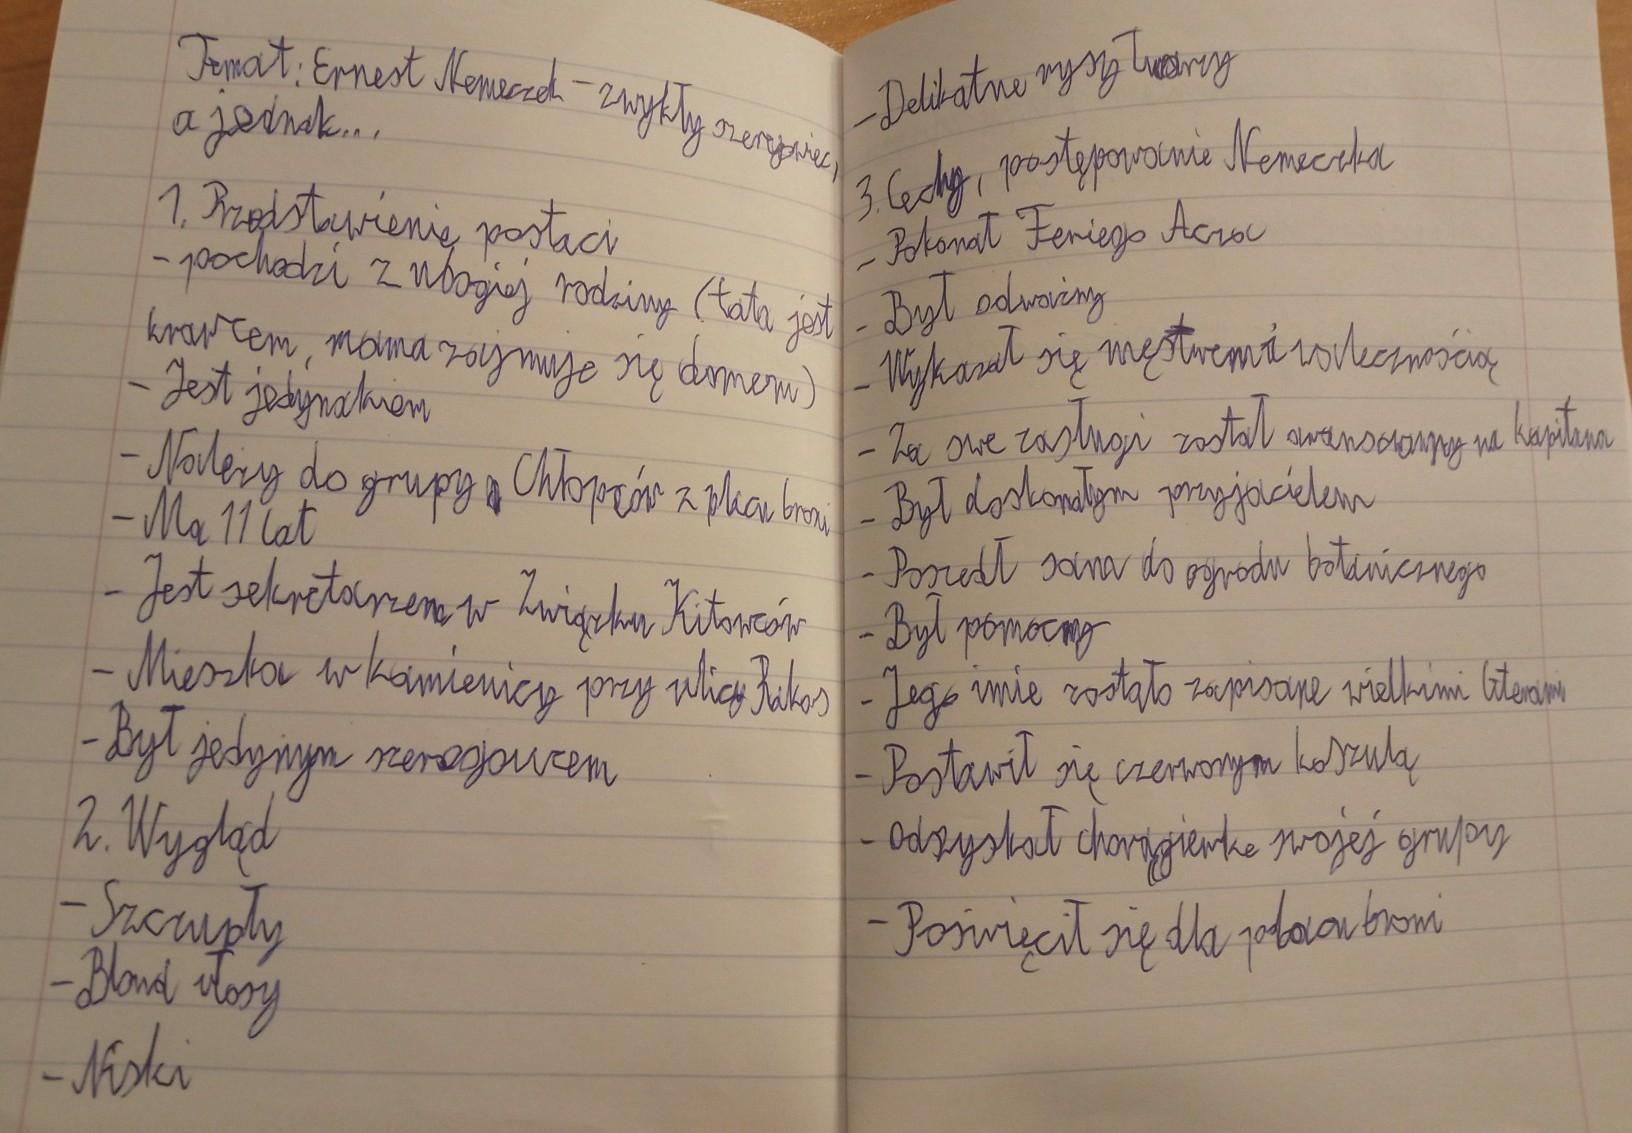 Temat: Ernest Nemeczek – zwykły szeregowiec,
a jednak...
1. Przedstawienie postaci
- pochodzi z ubogiej rodziny (tata jest
krawcem, mama zajmuje się domem)
- Jest jedynakiem
- Należy do grupy Chłopców z placu broni
- Ma 11 lat
- Jest sekretarzem w Związku Kitowców
- Mieszka w kamienicy przy ulicy Rakos
- Był jedynym szeregowcem
2. Wygląd
- Szczupły
- Blond włosy
- Niski
- Delikatne rysy twarzy
3. Cechy, postępowanie Nemeczka
- Pokonał Feriego Acza
- Był odważny
- Wykazał się męstwem i walecznością
- Za swe zasługi został awansowany na kapitana
- Był doskonałym przyjacielem
- Poszedł sam do ogrodu botanicznego
- Był pomocny
- Jego imie zostało zapisane wielkimi literami
- Postawił się czerwonym koszulą
- Odzyskał chorągiewke swojej grupy
- Poświęcił się dla placu broni